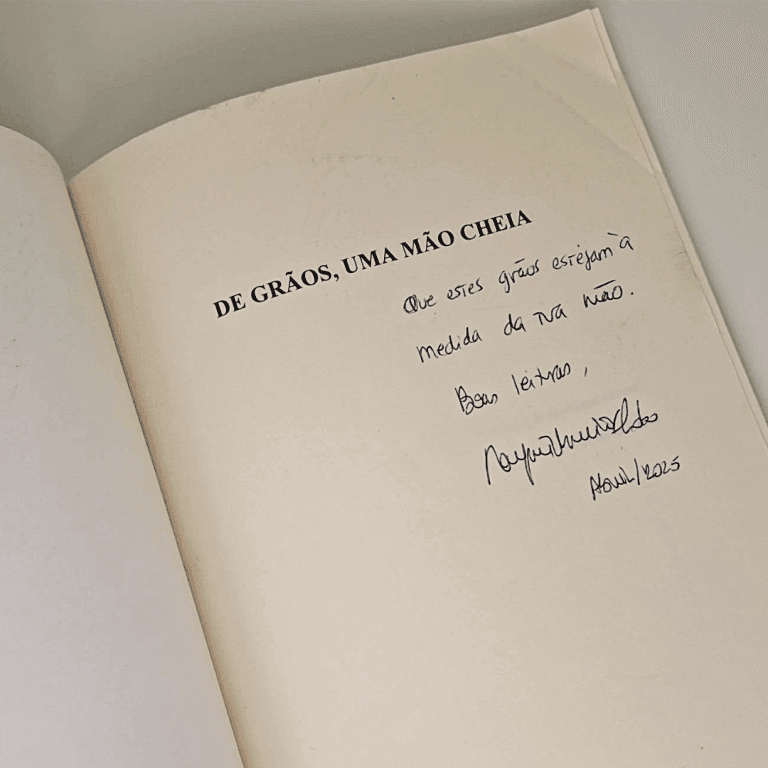 DE GRÃOS, UMA MÃO CHEIA
Que estes grãos estejam à
medida da tua mão.
Boas leituras,
Abril/2025